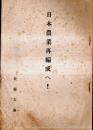 日本農業再編成へ！